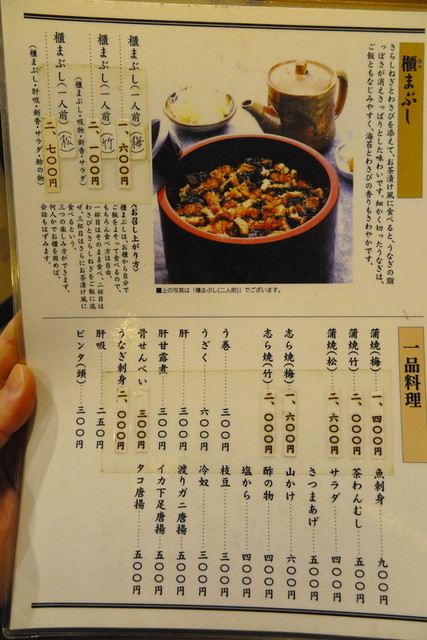 櫃まぶし
ひつ
さらしねぎとわさびを添えて、お茶漬け風に食べると、うなぎの脂
っぽさが消えさっぱりとした味わいです。細かく切ったうなぎは、
ご飯ともなじみやすく、海苔とわさびの香りもさわやかです。
■上の写真は「櫃まぶし(二人前)」でございます。
櫃まぶし(一人前) 梅 一、六〇〇円
櫃まぶし(一人前) 竹 二、一〇〇円
(櫃まぶし・吸物・新香・サラダ)
櫃まぶし(一人前) 松 二、七〇〇円
(櫃まぶし・肝吸・新香・サラダ・酢の物)
〈お召し上がり方〉
櫃まぶしは、お櫃から自分で
ご飯をよそって食べるので、
もちろん食べ方は自由。
一杯目はそのまま食べ、二杯目は
わさびとさらしねぎをご飯に混
ぜ、三杯目はさらにお茶漬け風に
食べるという、
三つの楽しみ方ができます。
何人かでお櫃を囲めば、
会話もはずみます。
一品料理
蒲焼(梅) 一、四〇〇円
蒲焼(竹) 二、〇〇〇円
蒲焼(松) 二、六〇〇円
志ら焼(梅) 一、六〇〇円
志ら焼(竹) 二、〇〇〇円
う巻 三〇〇円
うざく 六〇〇円
肝 三〇〇円
肝甘露煮 三〇〇円
骨せんべい 三〇〇円
うなぎ刺身 二、〇〇〇円
肝吸 二五〇円
ビンタ(頭) 三〇〇円
魚刺身 九〇〇円
茶わんむし 五〇〇円
サラダ 四〇〇円
さつまあげ 五〇〇円
山かけ 六〇〇円
酢の物 五〇〇円
塩から 四〇〇円
枝豆 三〇〇円
冷奴 三〇〇円
渡りガニ唐揚 五〇〇円
イカ下足唐揚 五〇〇円
タコ唐揚 五〇〇円